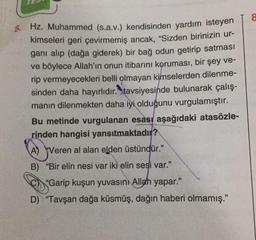 8
5. Hz. Muhammed (s.a.v.) kendisinden yardım isteyen
kimseleri geri çevirmemiş ancak, “Sizden birinizin ur-
ganı alıp (dağa giderek) bir bağ odun getirip satması
ve böylece Allah'ın onun itibarını koruması, bir şey ve-
rip vermeyecekleri belli olmayan kimselerden dilenme-
sinden daha hayırlıdır.” tavsiyesinde bulunarak çalış-
manın dilenmekten daha iyi olduğunu vurgulamıştır.
Bu metinde vurgulanan esası aşağıdaki atasözle-
rinden hangisi yansıtmaktadır?
A) “Veren al alan elden üstündür.”
B) “Bir elin nesi var iki elin sesi var.”
C) “Garip kuşun yuvasını Allah yapar.”
D) “Tavşan dağa küsmüş, dağın haberi olmamış.”